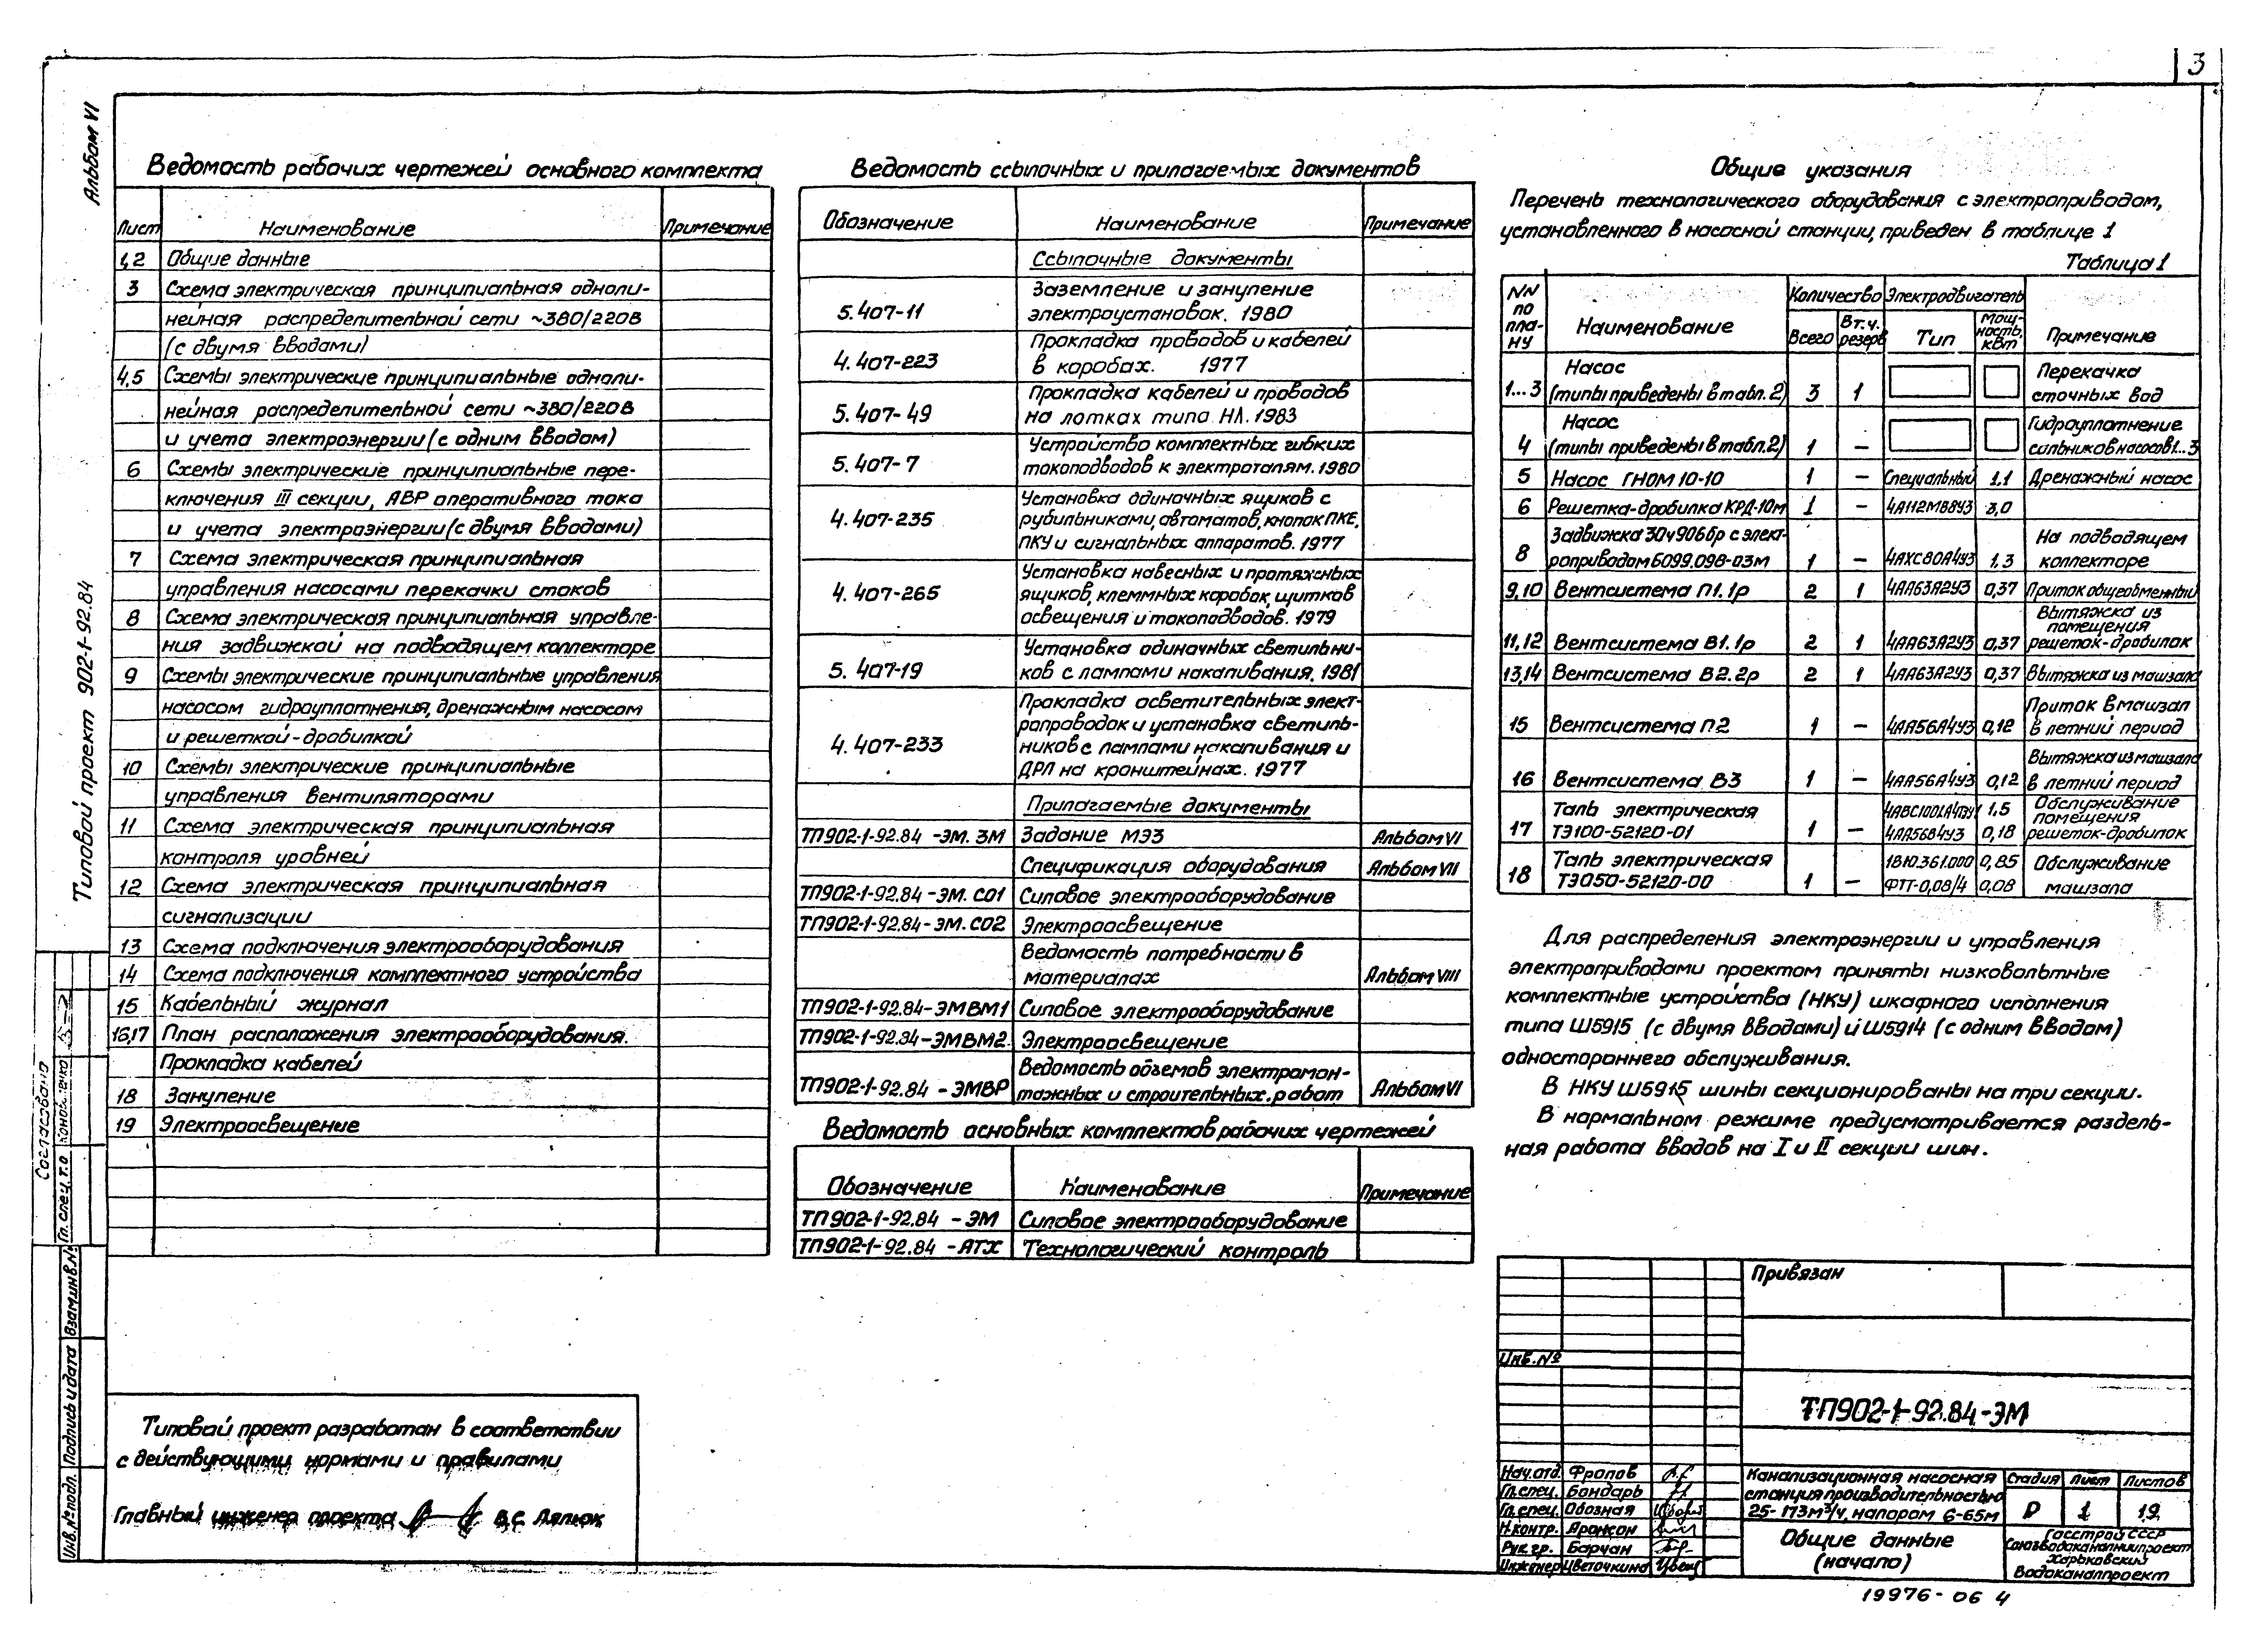 3
Альбом VI
Типовой проект 902-1-92.84
Ведомость рабочих чертежей основного комплекта
Лист Наименование Примечание
1,2 Общие данные
3 Схема электрическая принципиальная одноли-
нейная распределительной сети ~380/220В
(с двумя вводами)
4,5 Схемы электрические принципиальные одноли-
нейная распределительной сети ~380/220В
и учета электроэнергии (с одним вводом)
6 Схемы электрические принципиальные пере-
ключения III секции, АВР оперативного тока
и учета электроэнергии (с двумя вводами)
7 Схема электрическая принципиальная
управления насосами перекачки стоков
8 Схема электрическая принципиальная управле-
ния задвижкой на подводящем коллекторе
9 Схемы электрические принципиальные управления
насосом гидроуплотнения, дренажным насосом
и решеткой-дробилкой
10 Схемы электрические принципиальные
управления вентиляторами
11 Схема электрическая принципиальная
контроля уровней
12 Схема электрическая принципиальная
сигнализации
13 Схема подключения электрооборудования
14 Схема подключения комплектного устройства
15 Кабельный журнал
16,17 План расположения электрооборудования.
Прокладка кабелей
18 Зануление
19 Электроосвещение
Ведомость ссылочных и прилагаемых документов
Обозначение Наименование Примечание
Ссылочные документы
5.407-11 Заземление и зануление
электроустановок. 1980
4.407-223 Прокладка проводов и кабелей
в коробах. 1977
5.407-49 Прокладка кабелей и проводов
на лотках типа НЛ. 1983
5.407-7 Устройство комплектных гибких
токоподводов к электроталям. 1980
4.407-235 Установка одиночных ящиков с
рубильниками, автоматов, кнопок ПКЕ,
ПКУ и сигнальных аппаратов. 1977
4.407-265 Установка навесных и протяжных
ящиков, клеммных коробок, щитков
освещения и токоподводов. 1979
5.407-19 Установка одиночных светильни-
ков с лампами накаливания. 1981
4.407-233 Прокладка осветительных элект-
ропроводок и установка светиль-
ников с лампами накаливания и
ДРЛ на кронштейнах. 1977
Прилагаемые документы
ТП902-1-92.84 -ЭМ. ЗМ Задание МЭЗ Альбом VI
Спецификация оборудования Альбом VII
ТП902-1-92.84-ЭМ. СО1 Силовое электрооборудование
ТП902-1-92.84-ЭМ. СО2 Электроосвещение
Ведомость потребности в
материалах Альбом VIII
ТП902-1-92.84-ЭМВМ1 Силовое электрооборудование
ТП902-1-92.84-ЭМВМ2 Электроосвещение
ТП902-1-92.84 -ЭМВР Ведомость объемов электромон-
тажных и строительных работ Альбом VI
Ведомость основных комплектов рабочих чертежей
Обозначение Наименование Примечание
ТП902-1-92.84 -ЭМ Силовое электрооборудование
ТП902-1-92.84 -АТХ Технологический контроль
Общие указания
Перечень технологического оборудования с электроприводом,
установленного в насосной станции, приведен в таблице 1
Таблица 1
NN по пла-ну Наименование Количество Всего В т.ч. резерв Электродвигатель Тип Мощ-ность, кВт Примечание
1...3 Насос (типы приведены в табл. 2) 3 1 Перекачка сточных вод
4 Насос (типы приведены в табл. 2) 1 – Гидроуплотнение сальников насосов 1...3
5 Насос ГНОМ 10-10 1 – Специальный 1.1 Дренажный насос
6 Решетка-дробилка КРД-10м 1 – 4А112МВ8У3 3,0
8 Задвижка 30ч906бр с элект-роприводом Б099.098-03м 1 – 4АХС80А4У3 1.3 На подводящем коллекторе
9,10 Вентсистема П1.1р 2 1 4АА63А2У3 0,37 Приток общеобменный
11,12 Вентсистема В1.1р 2 1 4АА63А2У3 0,37 Вытяжка из помещения решеток-дробилок
13,14 Вентсистема В2.2р 2 1 4АА63А2У3 0,37 Вытяжка из машзала
15 Вентсистема П2 1 – 4АА56А4У3 0,12 Приток в машзал в летний период
16 Вентсистема В3 1 – 4АА56А4У3 0,12 Вытяжка из машзала в летний период
17 Таль электрическая ТЭ100-52120-01 1 – 1.5 4АА56В4У3 0,18 Обслуживание помещения решеток-дробилок
18 Таль электрическая ТЭ050-52120-00 1 – 18Ю.361.000 0,85 ФТТ-0,08/4 0,08 Обслуживание машзала
Для распределения электроэнергии и управления
электроприводами проектом приняты низковольтные
комплектные устройства (НКУ) шкафного исполнения
типа Ш5915 (с двумя вводами) и Ш5914 (с одним вводом)
одностороннего обслуживания.
В НКУ Ш5915 шины секционированы на три секции.
В нормальном режиме предусматривается раздель-
ная работа вводов на I и II секции шин.
Согласовано
Гл. спец. т.о
Инв.№ подл. Подпись и дата Взам.инв.№
Типовой проект разработан в соответствии
с действующими нормами и правилами
Главный инженер проекта В.С. Ляпюк
Привязан
Инв. №
ТП902-1-92.84-ЭМ
Нач.отд. Фролов
Гл.спец. Бондарь
Гл.спец. Обозная
Н.контр. Аронсон
Рук. гр. Барчан
Инженер Цветочкина
Канализационная насосная
станция производительностью
25-173м³/ч, напором 6-65м
Стадия Лист Листов
Р 1 19
Общие данные
(начало)
Госстрой СССР
Союзводоканалниипроект
Харьковский
Водоканалпроект
19976-06 4